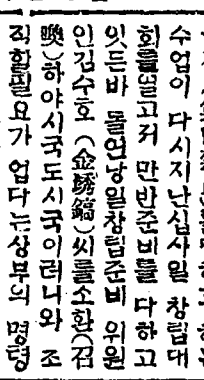 수업이 다시지난십사일 창립대
회를열고저 만반준비를 다하고
잇든바 돌연당일창립준비 위원
인김수호 씨를소환(召
喚)하야시국도시국이려니와 조
직할필요가 업다는상부의 명령